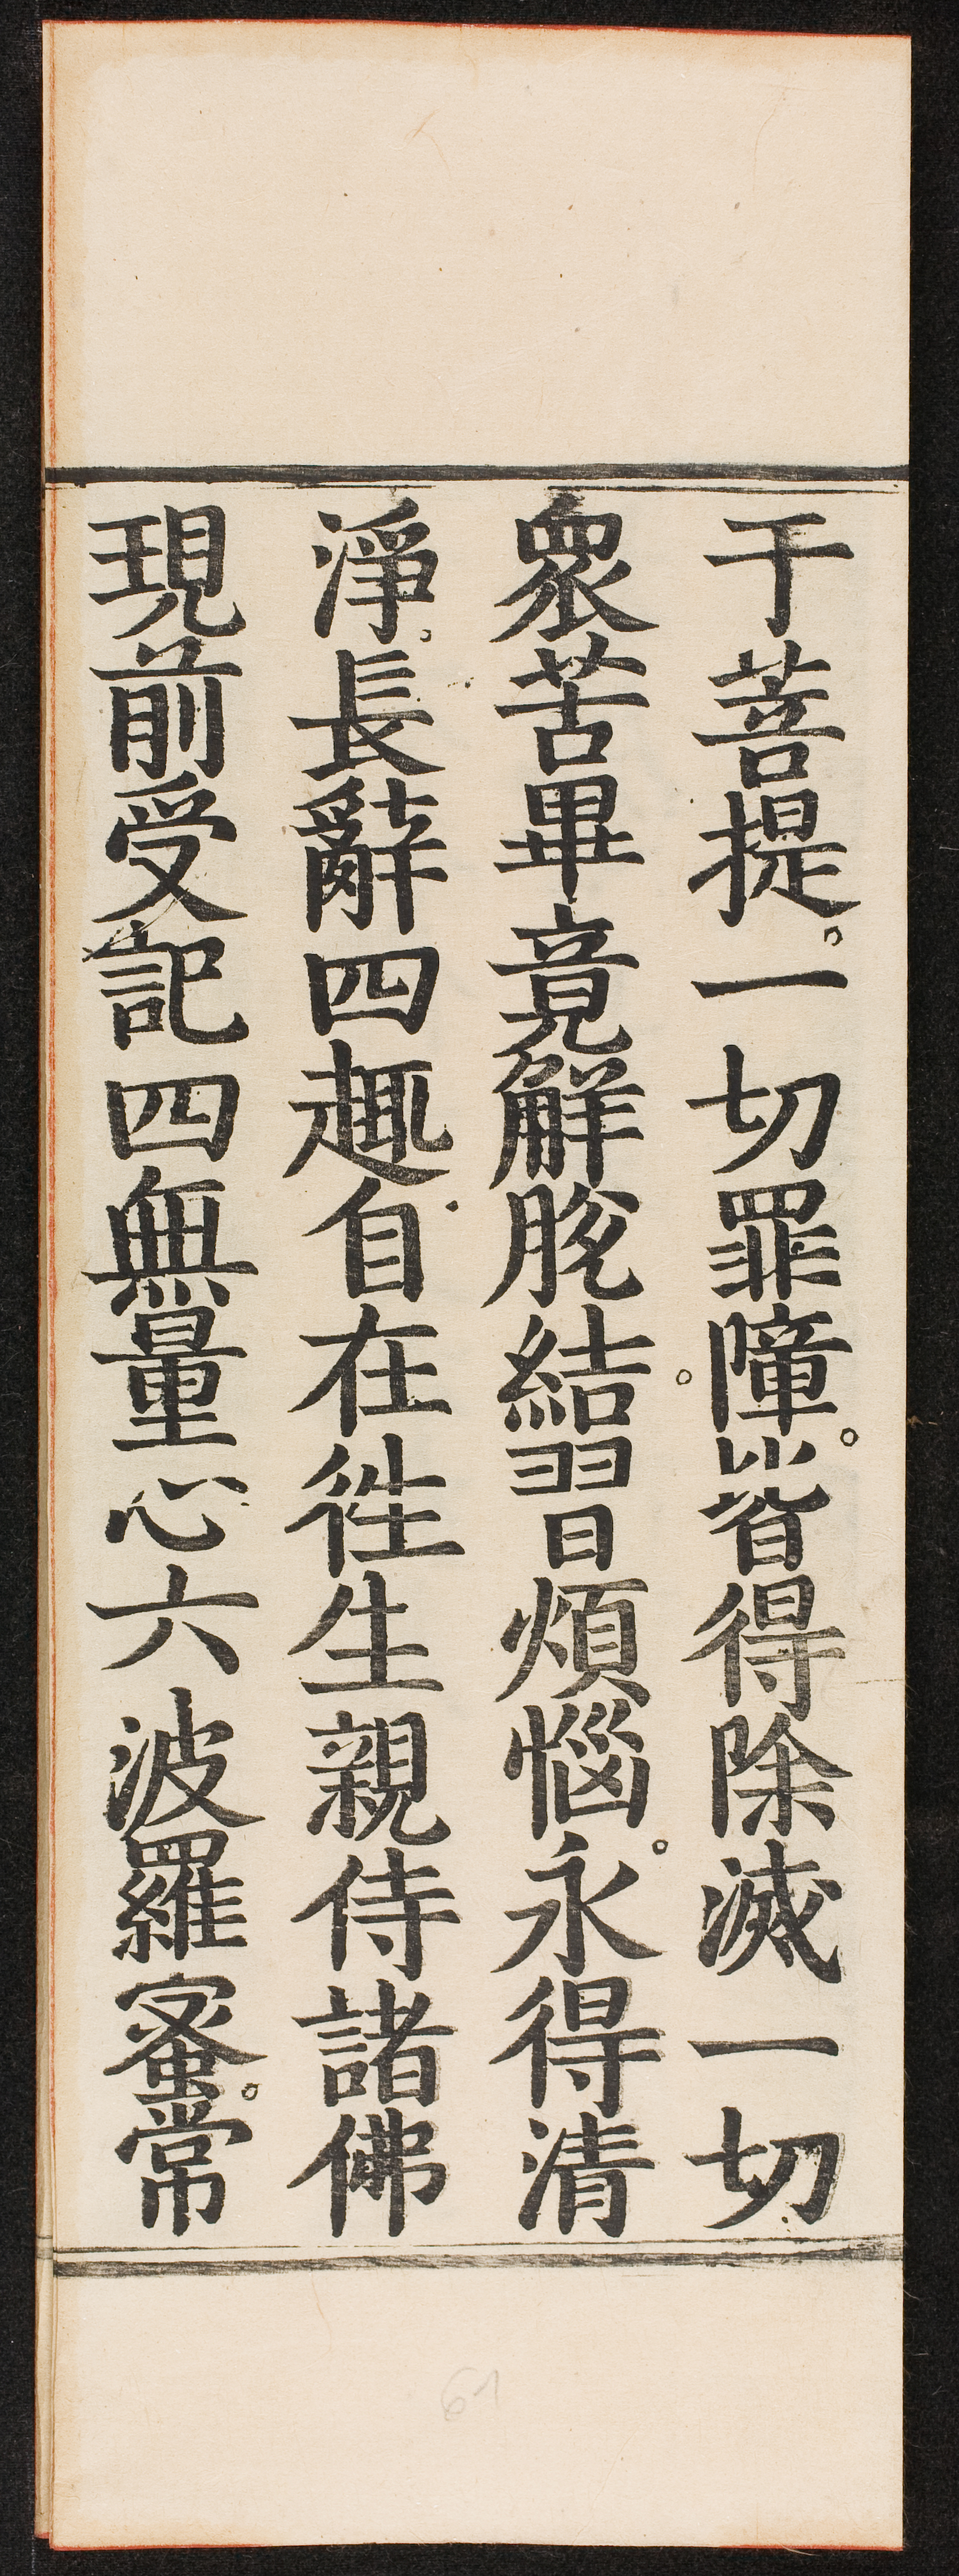 于菩提。一切罪障。皆得除滅一切
衆苦畢竟解脫。結習煩惱。永得清
淨。長辭四趣自在徃生親侍諸佛
現前受記四無量心六波羅蜜。常
61